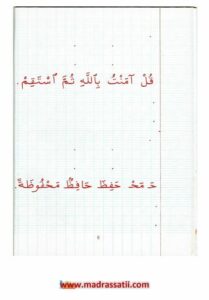 قُلْ آمَنْتُ بِاللَّهِ ثُمَّ اسْتَقِمْ.
حَفِظَ حَافِظٌ مَحْفُوظَةً.
www.madrassatii.com